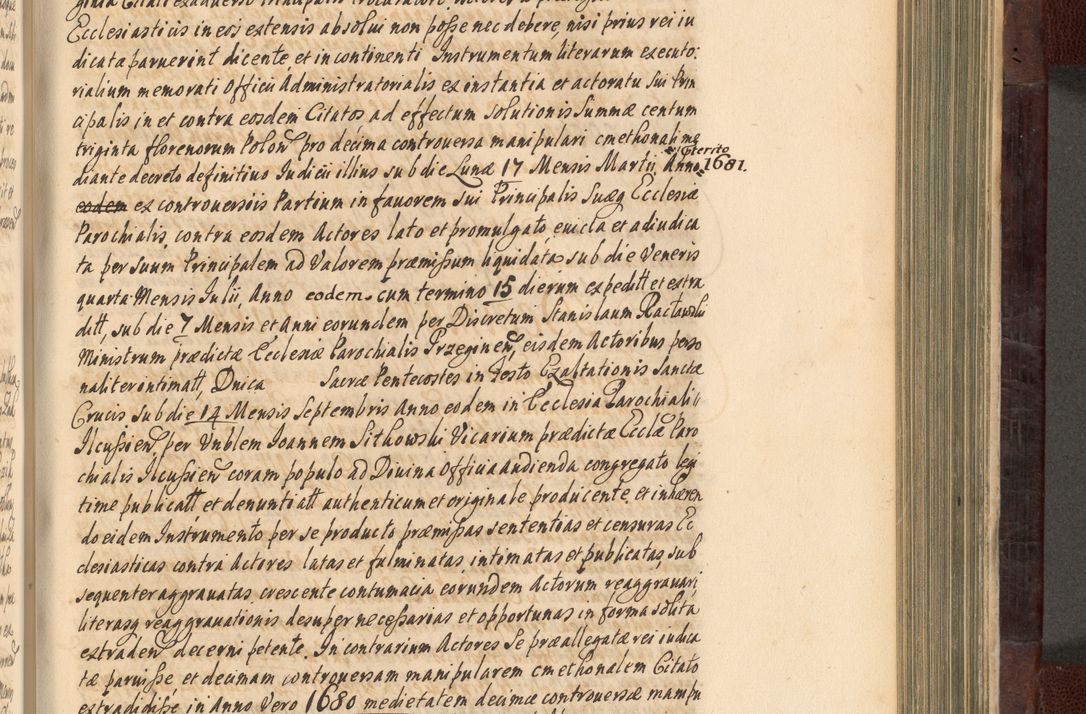 Ecclesiasticis in eos extensis absolui non posse nec debere, nisi prius rei iu
dicata paruerint dicente, et in continenti Instrumentum literarum executo:
rialium memorati Officii Administratorialis ex instantia et actoratu sui Prin
cipalis in et contra eosdem Citatos ad effectum solutionis Summæ centum
triginta florenorum Polon pro decima controversa manipulari cmethonali me
diante decreto definitivo Iudicii illius sub die Lunæ 17 Mensis Martii Anno 1681.
eodem ex controversiis Partium in fauorem sui Principalis Suæq Ecclesiæ
Parochialis, contra eosdem Actores lato et promulgato, euicta et adiudica
ta per suum Principalem ad Valorem præmissum liquidata sub die Veneris
quarta Mensis Iulii, Anno eodem cum termino 15 dierum expeditt et extra
ditt, sub die 7 Mensis et Anni eorundem per Discretum Stanislaum Racławski
Ministrum prædictæ Ecclesiæ Parochialis Przeginen, eisdem Actoribus perso
naliter intimatt, Dnica Sacræ Pentecostes in Festo Exaltationis Sanctæ
Crucis sub die 14 Mensis Septembris Anno eodem in Ecclesia Parochiali
Ilcussien, per Vnblem Ioannem Sitkowski Vicarium prædictæ Ecclæ Paro
chialis Ilcussien coram populo ad Divina Officia audienda congregato legi
time publicatt et denuntiatt authenticum et originale producente, et inhæren
do eidem Instrumento per se producto præmissas sententias et censuras Ec
clesiasticas contra Actores latas et fulminatas, intimatas et publicatas, sub
sequenter aggrauatas crescente contumacia eorundem Actorum reaggrauari,
literasq reaggrauationis desuper necessarias et opportunas in forma solita
extraden decerni petente. In contrarium Actores se præallegatæ rei iudica
tæ paruisse, et decimam controuersam manipularem cmethonalem Citato
extradidisse in Anno Vero 1680 medietatem decimæ controuersæ manipu